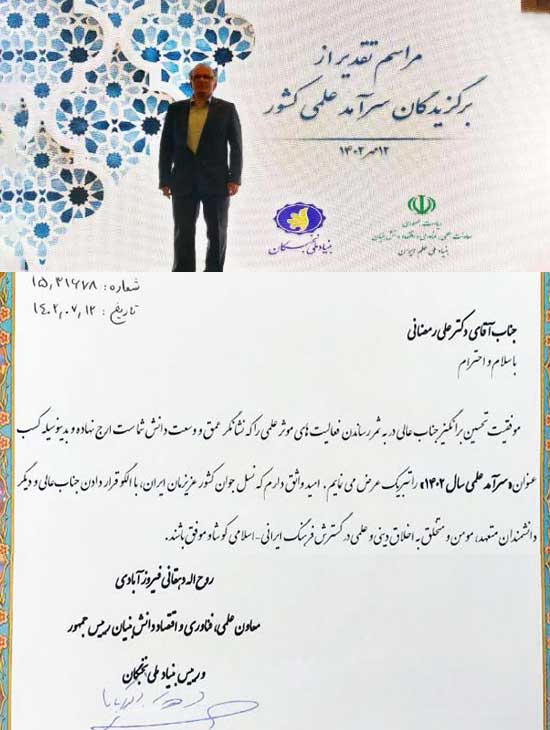 مراسم تقدیر از
برگزیدگان سرآمد علمی کشور
۱۲ مهر ۱۴۰۲
ریاست جمهوری
معاونت علمی، فناوری و اقتصاد دانش بنیان
بنیاد ملی علم ایران
بنیاد ملی نخبگان
شماره: ۱۵٫۴۱۶۷۸
تاریخ: ۱۴۰۲٫۰۷٫۱۲
جناب آقای دکتر علی رمضانی
با سلام و احترام
موفقیت تحسین برانگیز جناب عالی در به ثمر رساندن فعالیت های موثر علمی را که نشانگر عمق و وسعت دانش شماست ارج نهاده و بدینوسیله کسب
عنوان «سرآمد علمی سال ۱۴۰۲» را تبریک عرض می نمایم. امید واثق دارم که نسل جوان کشور عزیزمان ایران، با الگو قرار دادن جناب عالی و دیگر
دانشمندان متعهد، مومن و متخلق به اخلاق دینی و علمی در گسترش فرهنگ ایرانی - اسلامی کوشا و موفق باشند.
روح اله دهقانی فیروزآبادی
معاون علمی، فناوری و اقتصاد دانش بنیان رییس جمهور
و رییس بنیاد ملی نخبگان